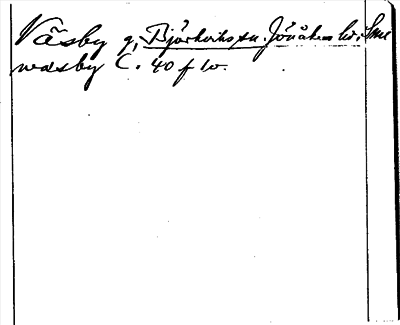 Väsby g, Björkviks sn. Jönåkers hd; Smé
wasby C. 40 f 10.